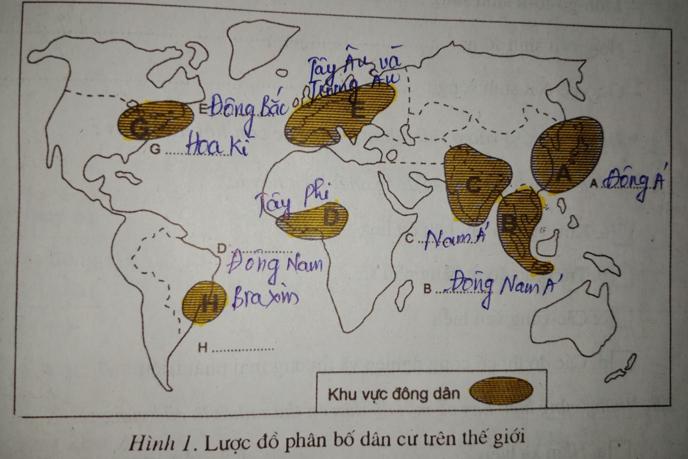 Tây Âu và
Trung Âu
E
E Đông Bắc
G
G .......... Hoa Kì
A
A Đông Á
C
B
Tây Phi
D
C .......... Nam Á
D ..............
Đông Nam
Braxin
H
B .......... Đông Nam Á
H ..............
Khu vực đông dân
Hình 1. Lược đồ phân bố dân cư trên thế giới